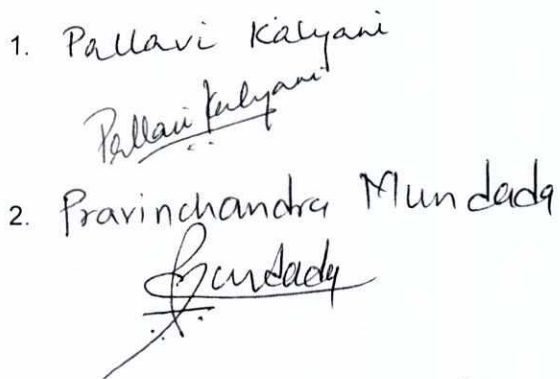 1. Pallavi Kalyani
Pallavi Kalyani
2. Pravinchandra Mundada
Mundada